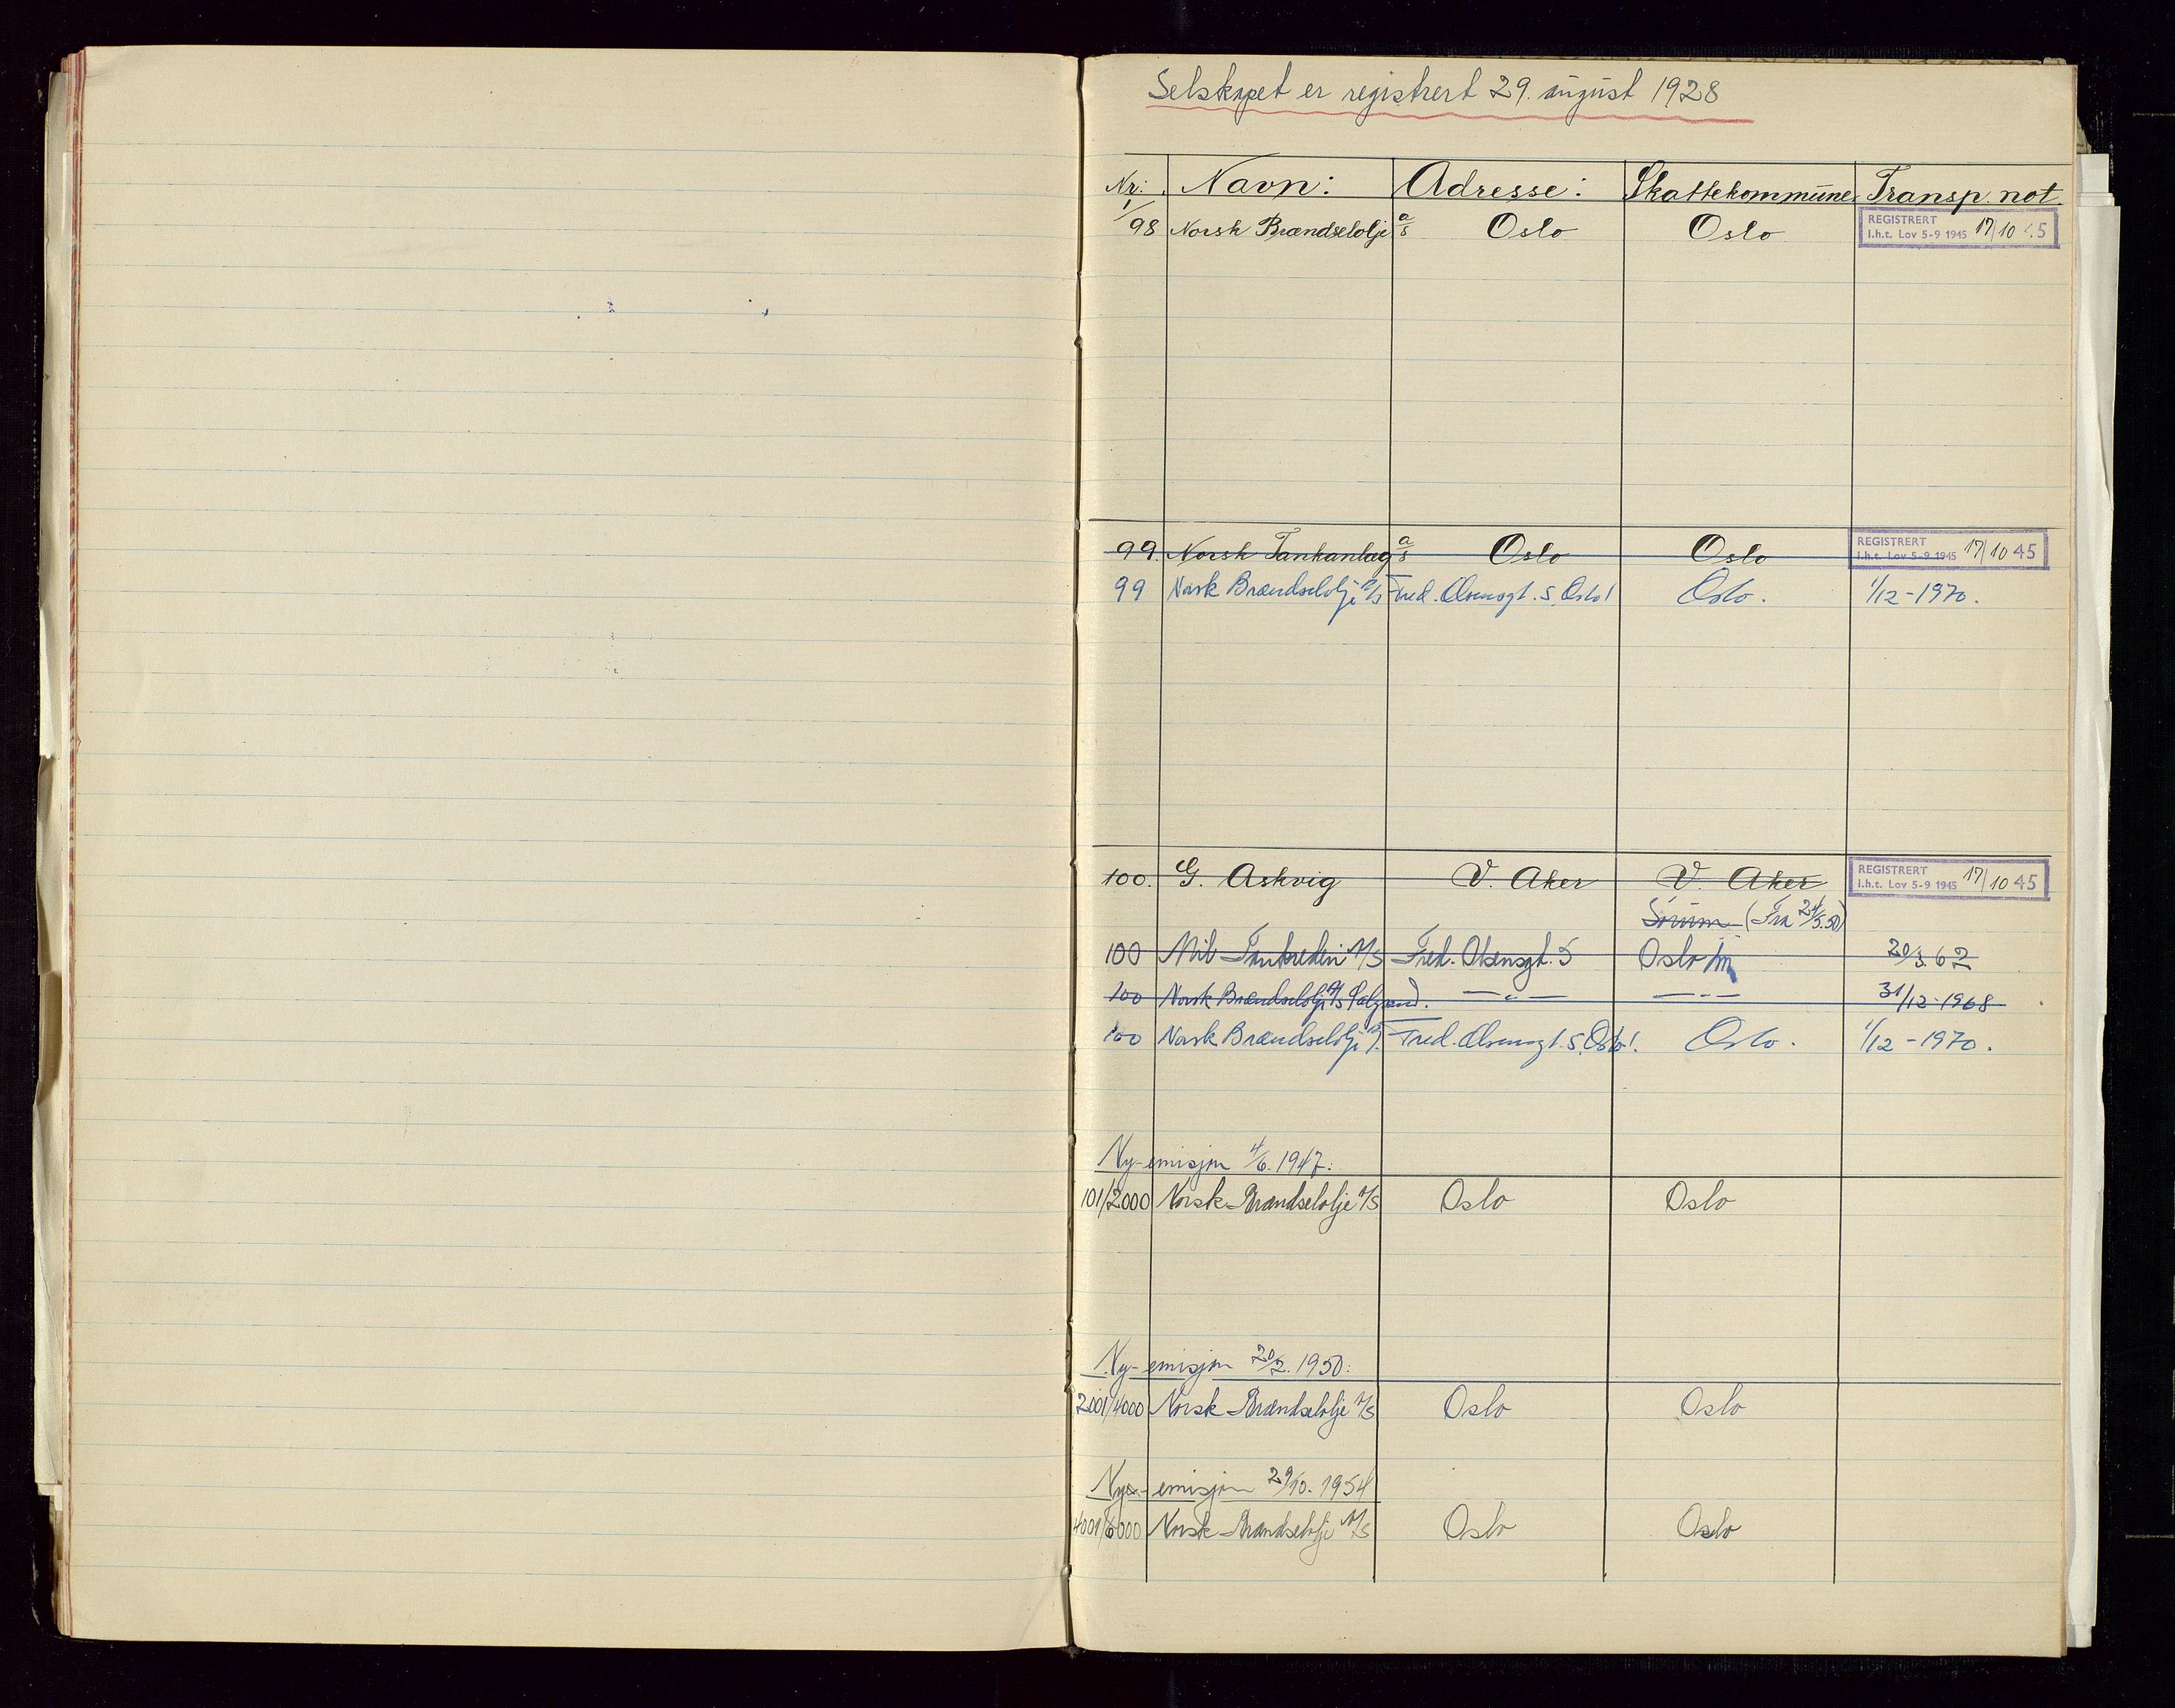 Selskapet er registrert 29. august 1928
Nr: Navn: Adresse: Skattekommune Transp. not.
1/98 Norsk Brændselolje a/s Oslo Oslo REGISTRERT I.h.t. Lov 5-9 1945 17/10 45
99. Norsk Tankanlæg a/s Oslo Oslo REGISTRERT I.h.t. Lov 5-9 1945 17/10 45
99 Norsk Brændselolje A/S Fred. Olsensgt. 5, Oslo 1 Oslo. 1/12-1970.
100. G. Askvig V. Aker V. Aker REGISTRERT I.h.t. Lov 5-9 1945 17/10 45
Sörum (Fra 24/5.50)
100 Nil Tankrederi A/S Fred. Olsensgt. 5 Oslo 20/3.62
100 Norsk Brændselolje A/S —"— —"— 31/12-1968
100 Norsk Brændselolje A/S. Fred. Olsensgt. 5, Oslo 1. Oslo. 1/12-1970.
Ny-emisjon 4/6.1947:
101/2000 Norsk Brændselolje A/S Oslo Oslo
Ny-emisjon 20/2.1950:
2001/4000 Norsk Brændselolje A/S Oslo Oslo
Ny-emisjon 29/10.1954
4001/6000 Norsk Brændselolje A/S Oslo Oslo